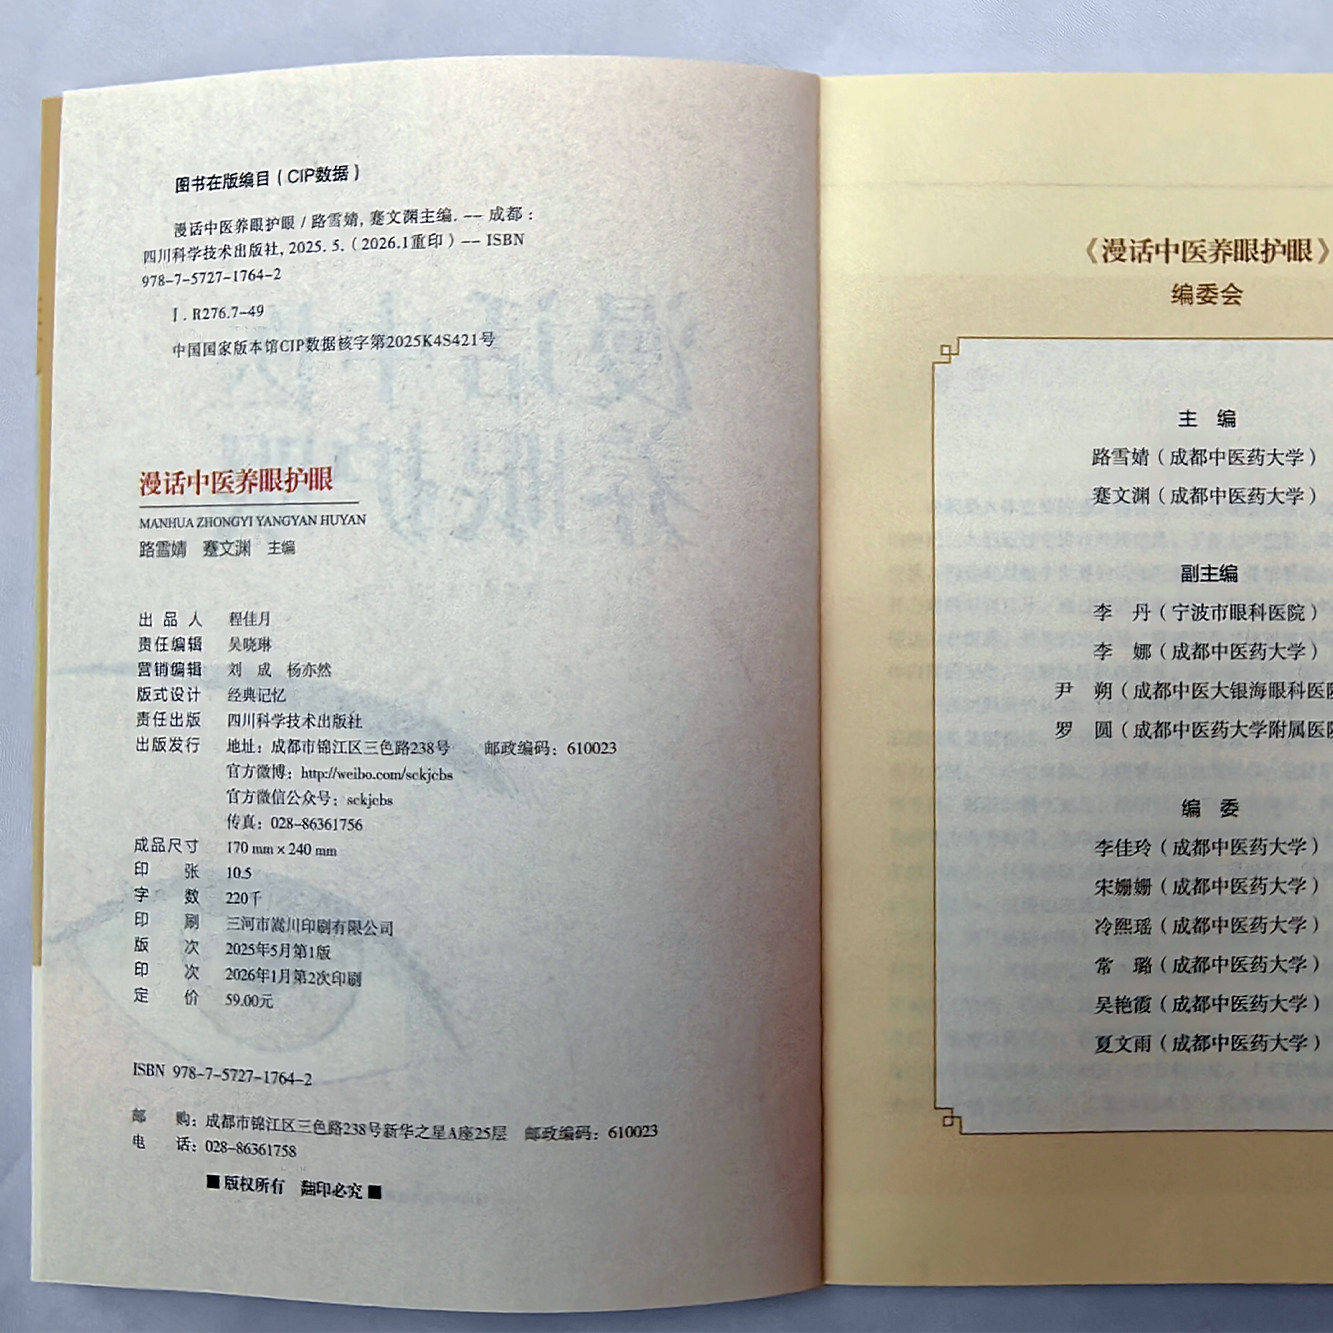 图书在版编目（CIP数据）
漫话中医养眼护眼 / 路雪婧, 蹇文渊主编. -- 成都：
四川科学技术出版社, 2025. 5.（2026.1重印）-- ISBN
978-7-5727-1764-2
Ⅰ. R276.7-49
中国国家版本馆CIP数据核字第2025K4S421号
漫话中医养眼护眼
MANHUA ZHONGYI YANGYAN HUYAN
路雪婧　蹇文渊　主编
出 品 人　程佳月
责任编辑　吴晓琳
营销编辑　刘　成　杨亦然
版式设计　经典记忆
责任出版　四川科学技术出版社
出版发行　地址：成都市锦江区三色路238号　邮政编码：610023
官方微博：http://weibo.com/sckjcbs
官方微信公众号：sckjcbs
传真：028-86361756
成品尺寸　170 mm × 240 mm
印　　张　10.5
字　　数　220千
印　　刷　三河市嵩川印刷有限公司
版　　次　2025年5月第1版
印　　次　2026年1月第2次印刷
定　　价　59.00元
ISBN 978-7-5727-1764-2
邮　　购：成都市锦江区三色路238号新华之星A座25层　邮政编码：610023
电　　话：028-86361758
■ 版权所有　翻印必究 ■
《漫话中医养眼护眼》
编委会
主　编
路雪婧（成都中医药大学）
蹇文渊（成都中医药大学）
副主编
李　丹（宁波市眼科医院）
李　娜（成都中医药大学）
尹　朔（成都中医大银海眼科医院
罗　圆（成都中医药大学附属医院
编　委
李佳玲（成都中医药大学）
宋姗姗（成都中医药大学）
冷熙瑶（成都中医药大学）
常　璐（成都中医药大学）
吴艳霞（成都中医药大学）
夏文雨（成都中医药大学）